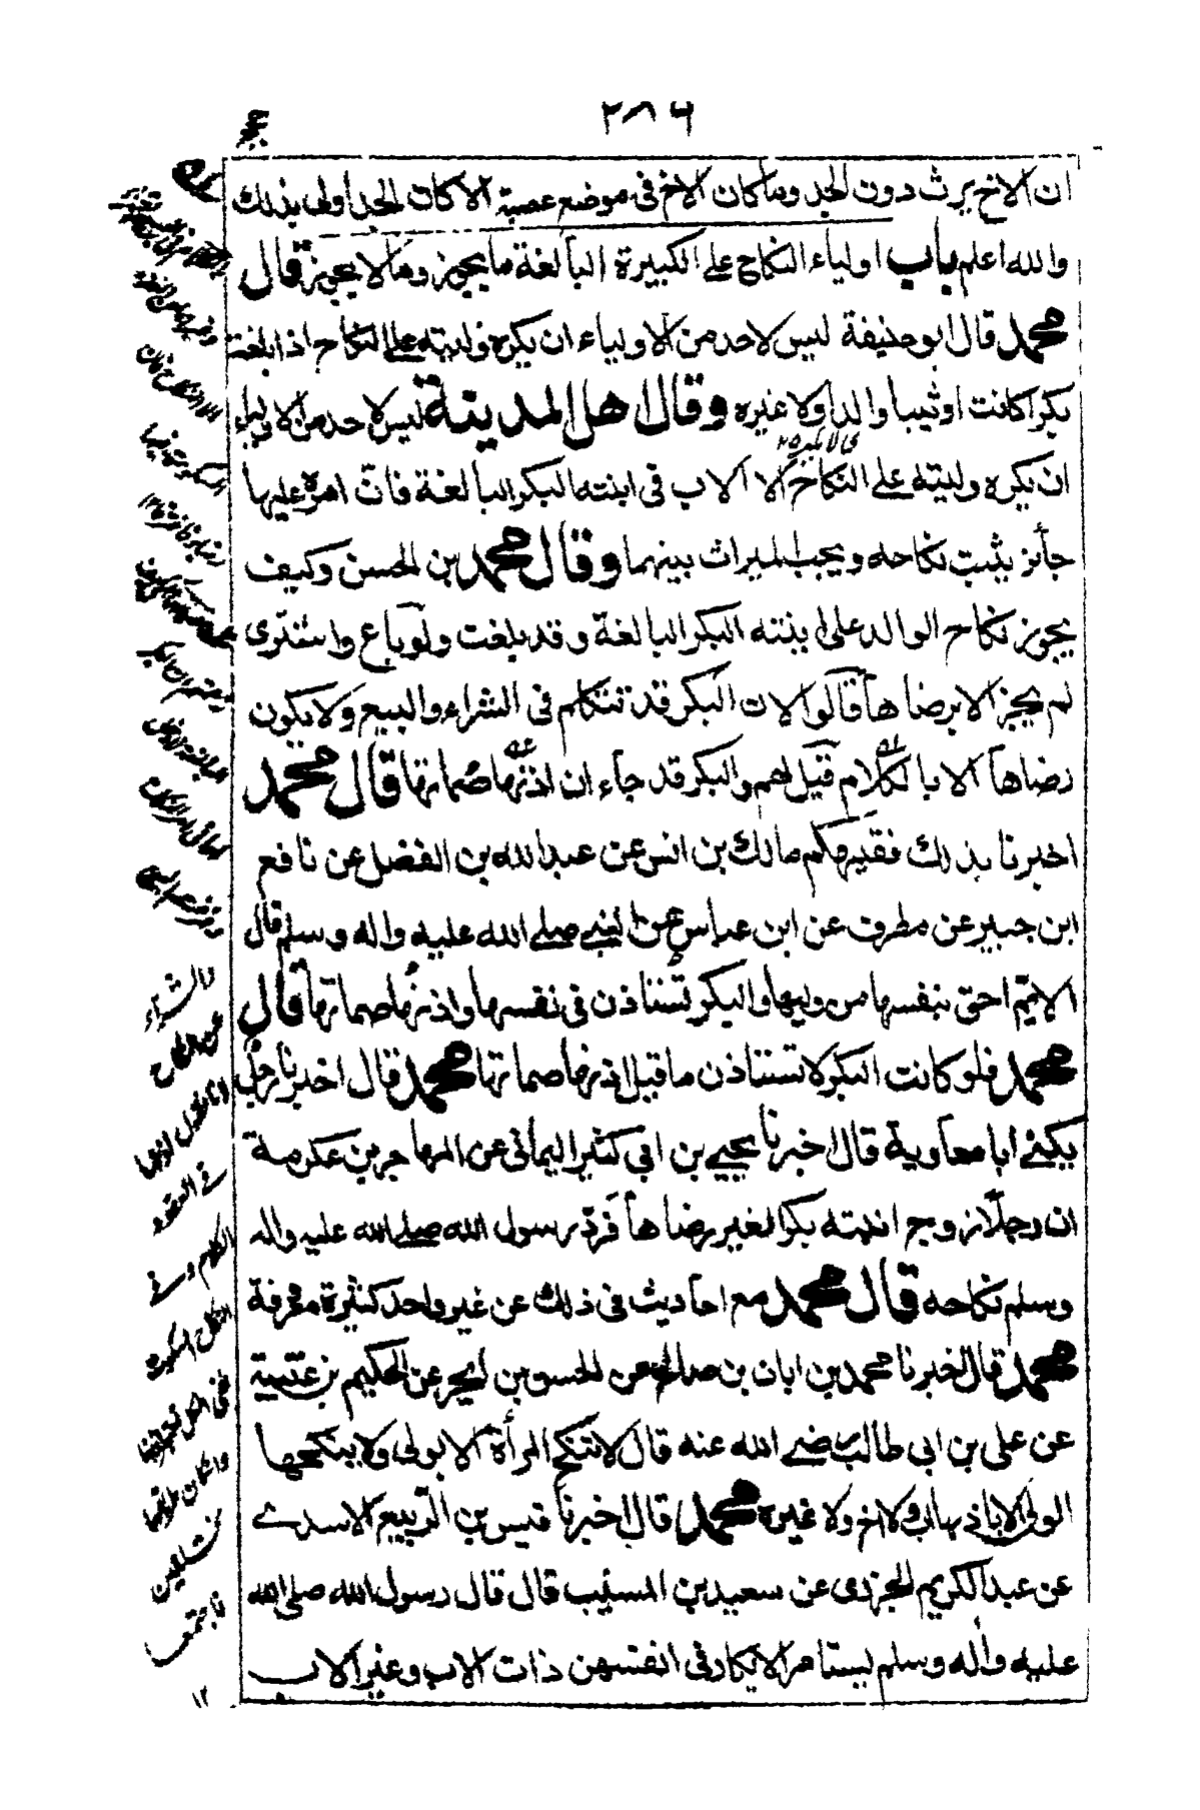 ٢٨٦
ان الاخ يرث دون الجد وما كان الاخ في موضع عصبة الا كان الجد اولى بذلك
والله اعلم باب اولياء النكاح على الكبيرة البالغة ما يجوز وما لا يجوز قال
محمد قال ابو حنيفة ليس لاحد من الاولياء ان يكره وليته على النكاح اذا بلغت
بكرا كانت او ثيبا والدا ولا غيره وقال اهل المدينة ليس لاحد من الاولياء
ان يكره وليته على النكاح الا الاب في ابنته البكر البالغة فان امره عليها
جائز يثبت نكاحه ويجب الميراث بينهما وقال محمد بن الحسن وكيف
يجوز نكاح الوالد على ابنته البكر البالغة وقد بلغت ولو باع واشترى
لم يجز الا برضاها قالوا لان البكر قد تتكلم في الشراء والبيع ولا يكون
رضاها الا بالكلام قيل لهم والبكر قد جاء ان اذنها صماتها قال محمد
اخبرنا بذلك فقيهكم مالك بن انس عن عبد الله بن الفضل عن نافع
ابن جبير عن مطرف عن ابن عباس عن النبي صلى الله عليه واله وسلم قال
الايم احق بنفسها من وليها والبكر تستاذن في نفسها واذنها صماتها قال
محمد فلو كانت البكر لا تستاذن ما قيل اذنها صماتها محمد قال اخبرنا رجل
يكنى ابا معاوية قال اخبرنا يحيى بن ابي كثير اليماني عن المهاجر بن عكرمة
ان رجلا زوج ابنته بكرا بغير رضاها فرد رسول الله صلى الله عليه واله
وسلم نكاحه قال محمد مع احاديث في ذلك عن غير واحد كثيرة معرفة
محمد قال اخبرنا محمد بن ابان بن صالح عن الحسن بن الحر عن الحكيم بن عتيبة
عن علي بن ابي طالب رضي الله عنه قال لا تنكح المرأة الا بولي ولا ينكحها
الولي الا باذنها اب ولا اخ ولا غيره محمد قال اخبرنا قيس بن الربيع الاسدي
عن عبد الكريم الجزري عن سعيد بن المسيب قال قال رسول الله صلى الله
عليه واله وسلم ليستامر الابكار في انفسهن ذات الاب وغير الاب
١٢